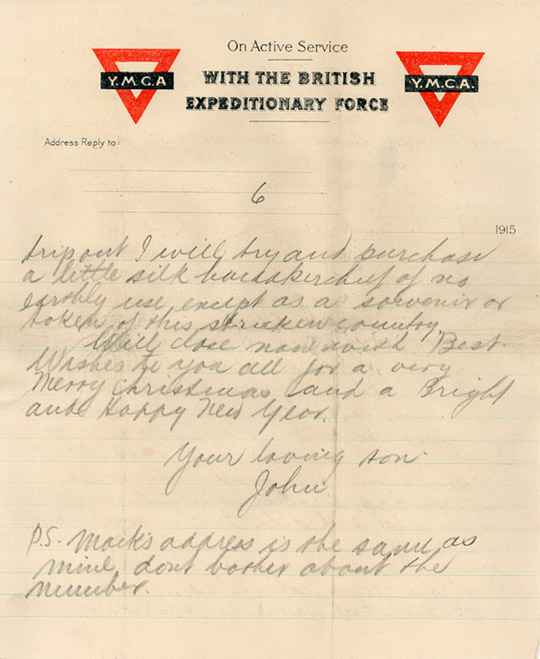 On Active Service
Y.M.C.A
WITH THE BRITISH
EXPEDITIONARY FORCE
Y.M.C.A.
Address Reply to:
6
1915
trip out I will try and purchase
a little silk handkerchief of no
earthly use except as a souvenir or
token of this stricken country.
Will close now with Best
Wishes to you all for a very
Merry Christmas and a Bright
and Happy New Year.
Your loving son
John
P.S. Mack's address is the same as
mine, dont bother about the
number.